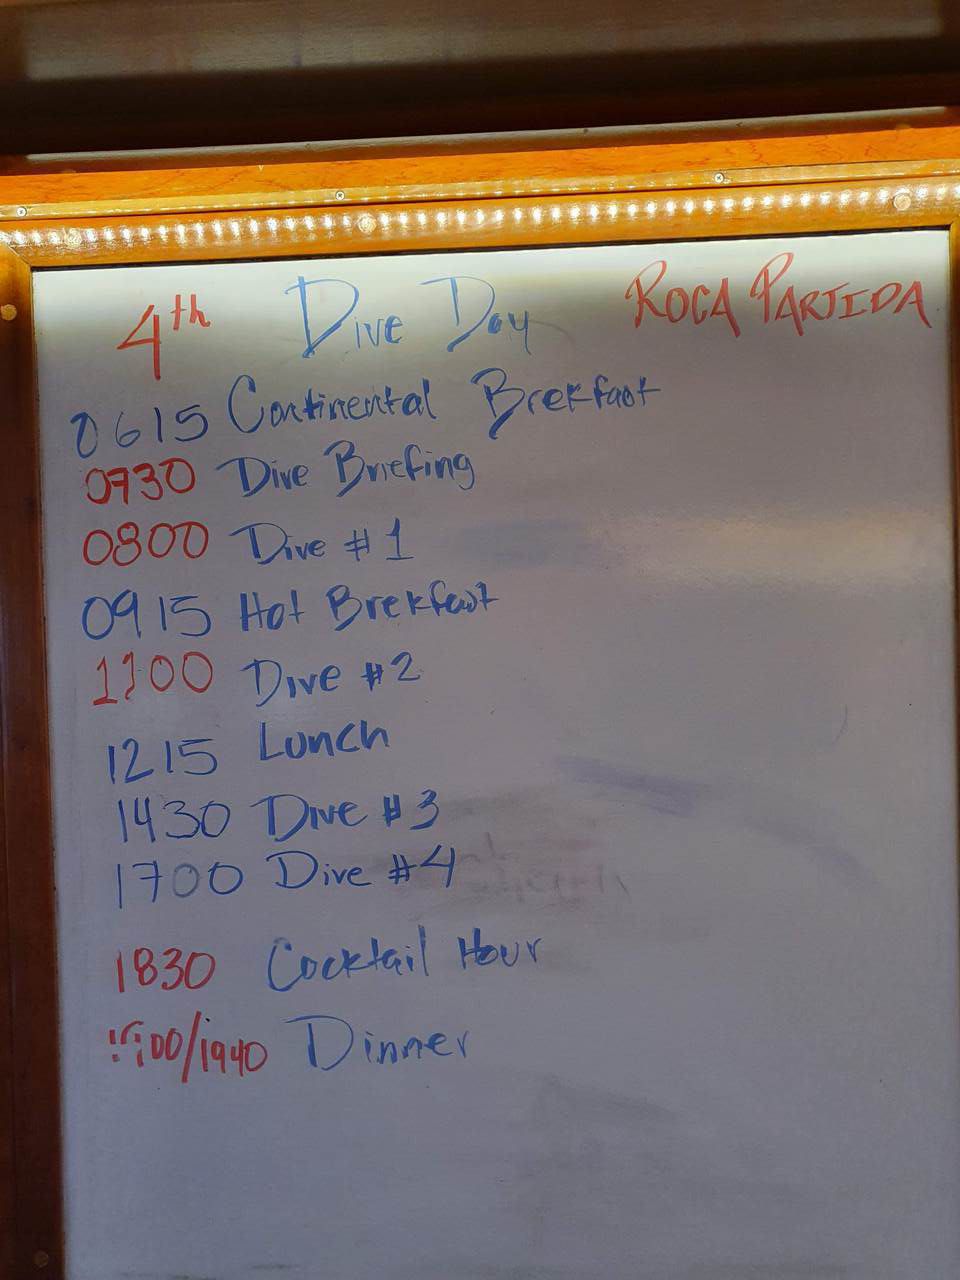 4th Dive Day ROCA PARTIDA
0615 Continental Brekfast
0730 Dive Briefing
0800 Dive #1
0915 Hot Brekfast
1100 Dive #2
1215 Lunch
1430 Dive #3
1700 Dive #4
1830 Cocktail Hour
/1940 Dinner